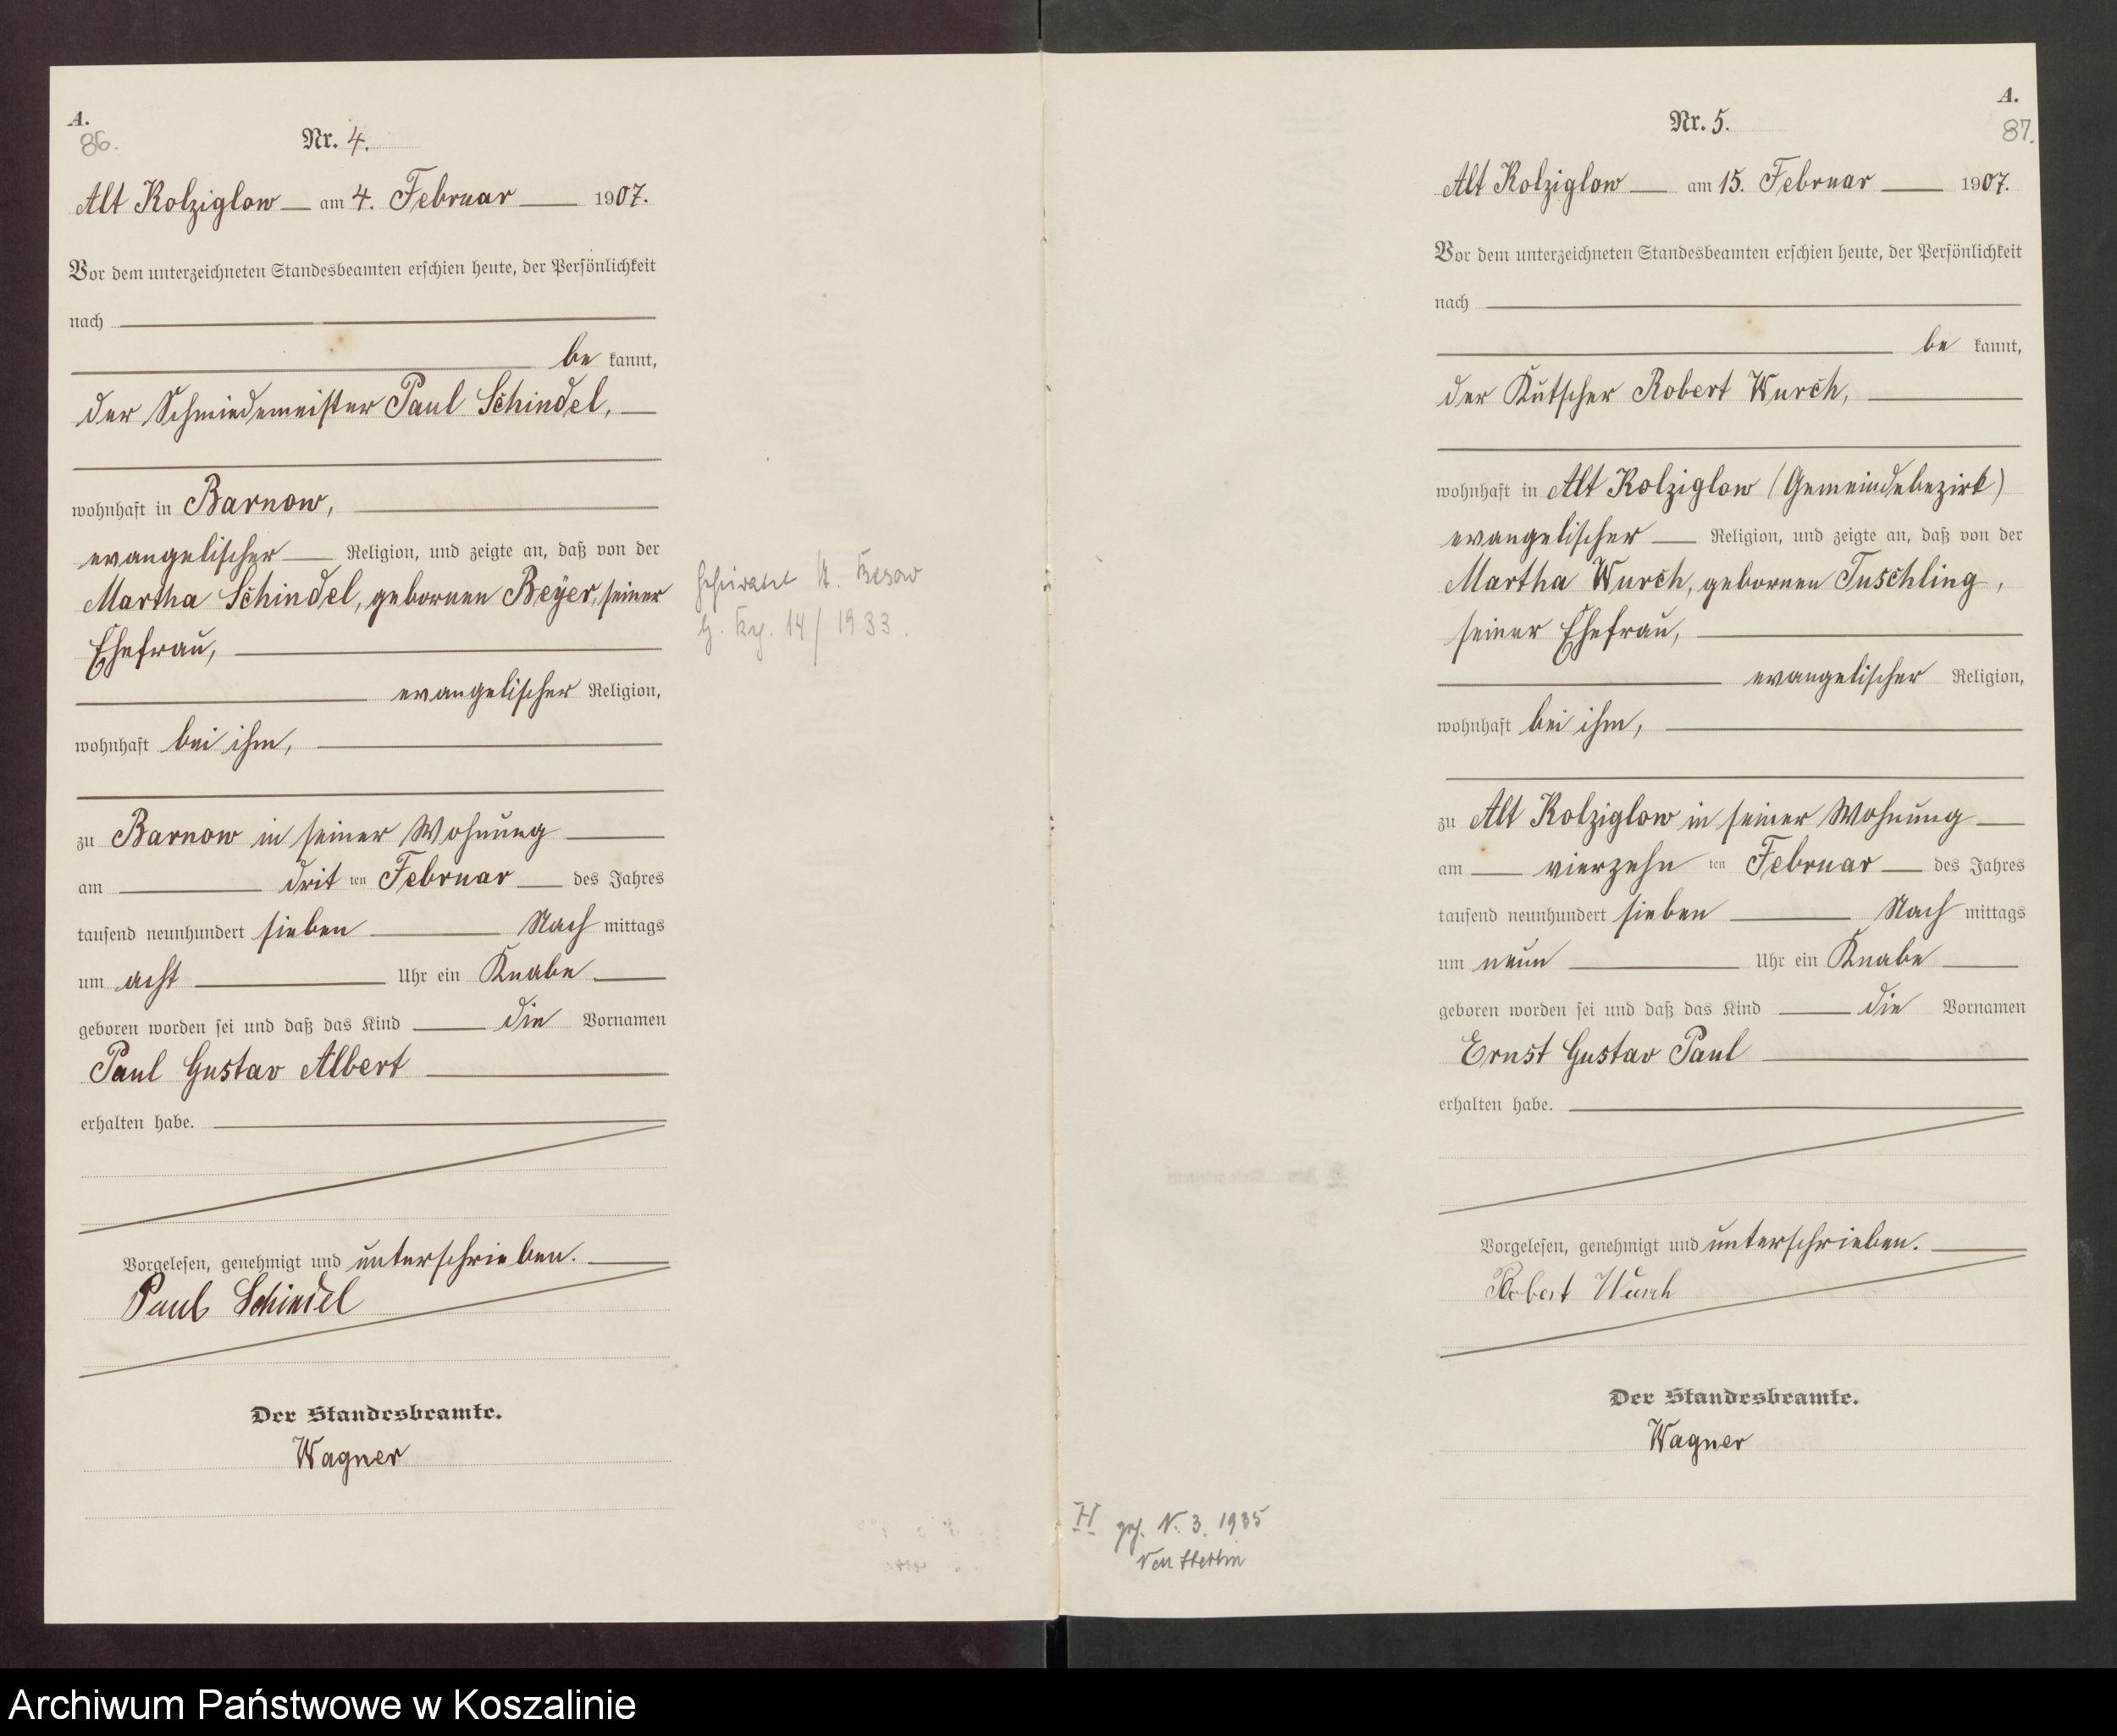 A.
86.
Nr. 4.
Alt Kolziglow am 4. Februar 1907.
Vor dem unterzeichneten Standesbeamten erschien heute, der Persönlichkeit
nach
be kannt,
der Schmiedemeister Paul Schindel,
wohnhaft in Barnow,
evangelischer Religion, und zeigte an, daß von der
Martha Schindel, gebornen Beyer, seiner
Ehefrau,
evangelischer Religion,
wohnhaft bei ihm,
zu Barnow in seiner Wohnung
am drit ten Februar des Jahres
tausend neunhundert sieben Nach mittags
um acht Uhr ein Knabe
geboren worden sei und daß das Kind die Vornamen
Paul Gustav Albert
erhalten habe.
Vorgelesen, genehmigt und unterschrieben.
Paul Schindel
Der Standesbeamte.
Wagner
14/1933.
A.
87.
Nr. 5.
Alt Kolziglow am 15. Februar 1907.
Vor dem unterzeichneten Standesbeamten erschien heute, der Persönlichkeit
nach
be kannt,
der Kutscher Robert Wurch,
wohnhaft in Alt Kolziglow (Gemeindebezirk)
evangelischer Religion, und zeigte an, daß von der
Martha Wurch, gebornen Tuschling,
seiner Ehefrau,
evangelischer Religion,
wohnhaft bei ihm,
zu Alt Kolziglow in seiner Wohnung
am vierzehn ten Februar des Jahres
tausend neunhundert sieben Nach mittags
um neun Uhr ein Knabe
geboren worden sei und daß das Kind die Vornamen
Ernst Gustav Paul
erhalten habe.
Vorgelesen, genehmigt und unterschrieben.
Robert Wurch
Der Standesbeamte.
Wagner
H N. 3. 1935
Archiwum Państwowe w Koszalinie